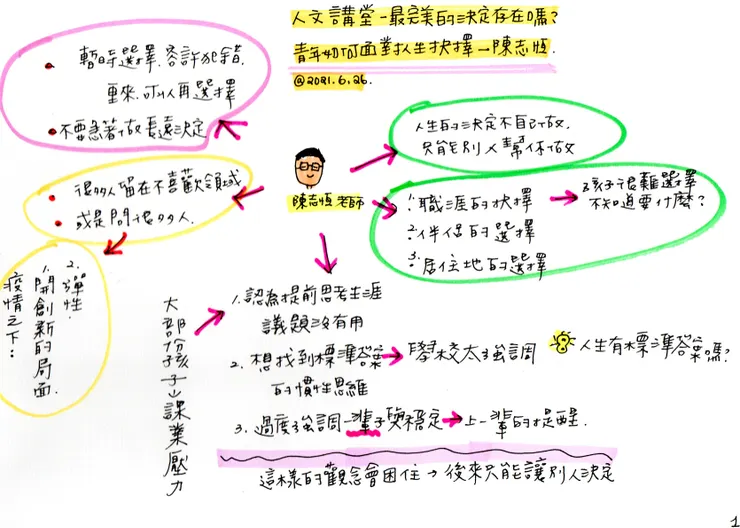 人文講堂-最完美的決定存在嗎?
青年如何面對人生抉擇-陳志恆
@2021.6.26.
暫時選擇.容許犯錯.
重來.可以再選擇
不要急著做長遠決定
人生的決定不自己做.
只能別人幫你做
陳志恆老師
很多人留在不喜歡領域
或是問很多人.
1.職涯的抉擇
2.伴侶的選擇
3.居住地的選擇
孩子很難選擇
不知道要什麼?
疫情之下:
1.開創新的局面.
2.彈性.
大部份孩子山課業壓力
1.認為提前思考生涯
議題沒有用
2.想找到標準答案
的慣性思維
學校太強調
人生有標準答案嗎?
3.過度強調一輩子要穩定
上一輩的提醒.
這樣的觀念會困住→後來只能讓別人決定
1